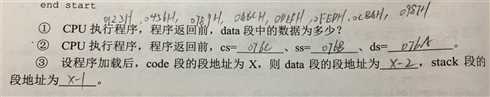 end start
0123H, 0456H, 0789H, 0abcH, 0defH, 0fedH, 0cbaH, 0987H
① CPU 执行程序，程序返回前，data 段中的数据为多少？
② CPU 执行程序，程序返回前，cs= 076C 、ss= 076B 、ds= 076A 。
③ 设程序加载后，code 段的段地址为 X，则 data 段的段地址为 X-2 ，stack 段的
段地址为 X-1 。